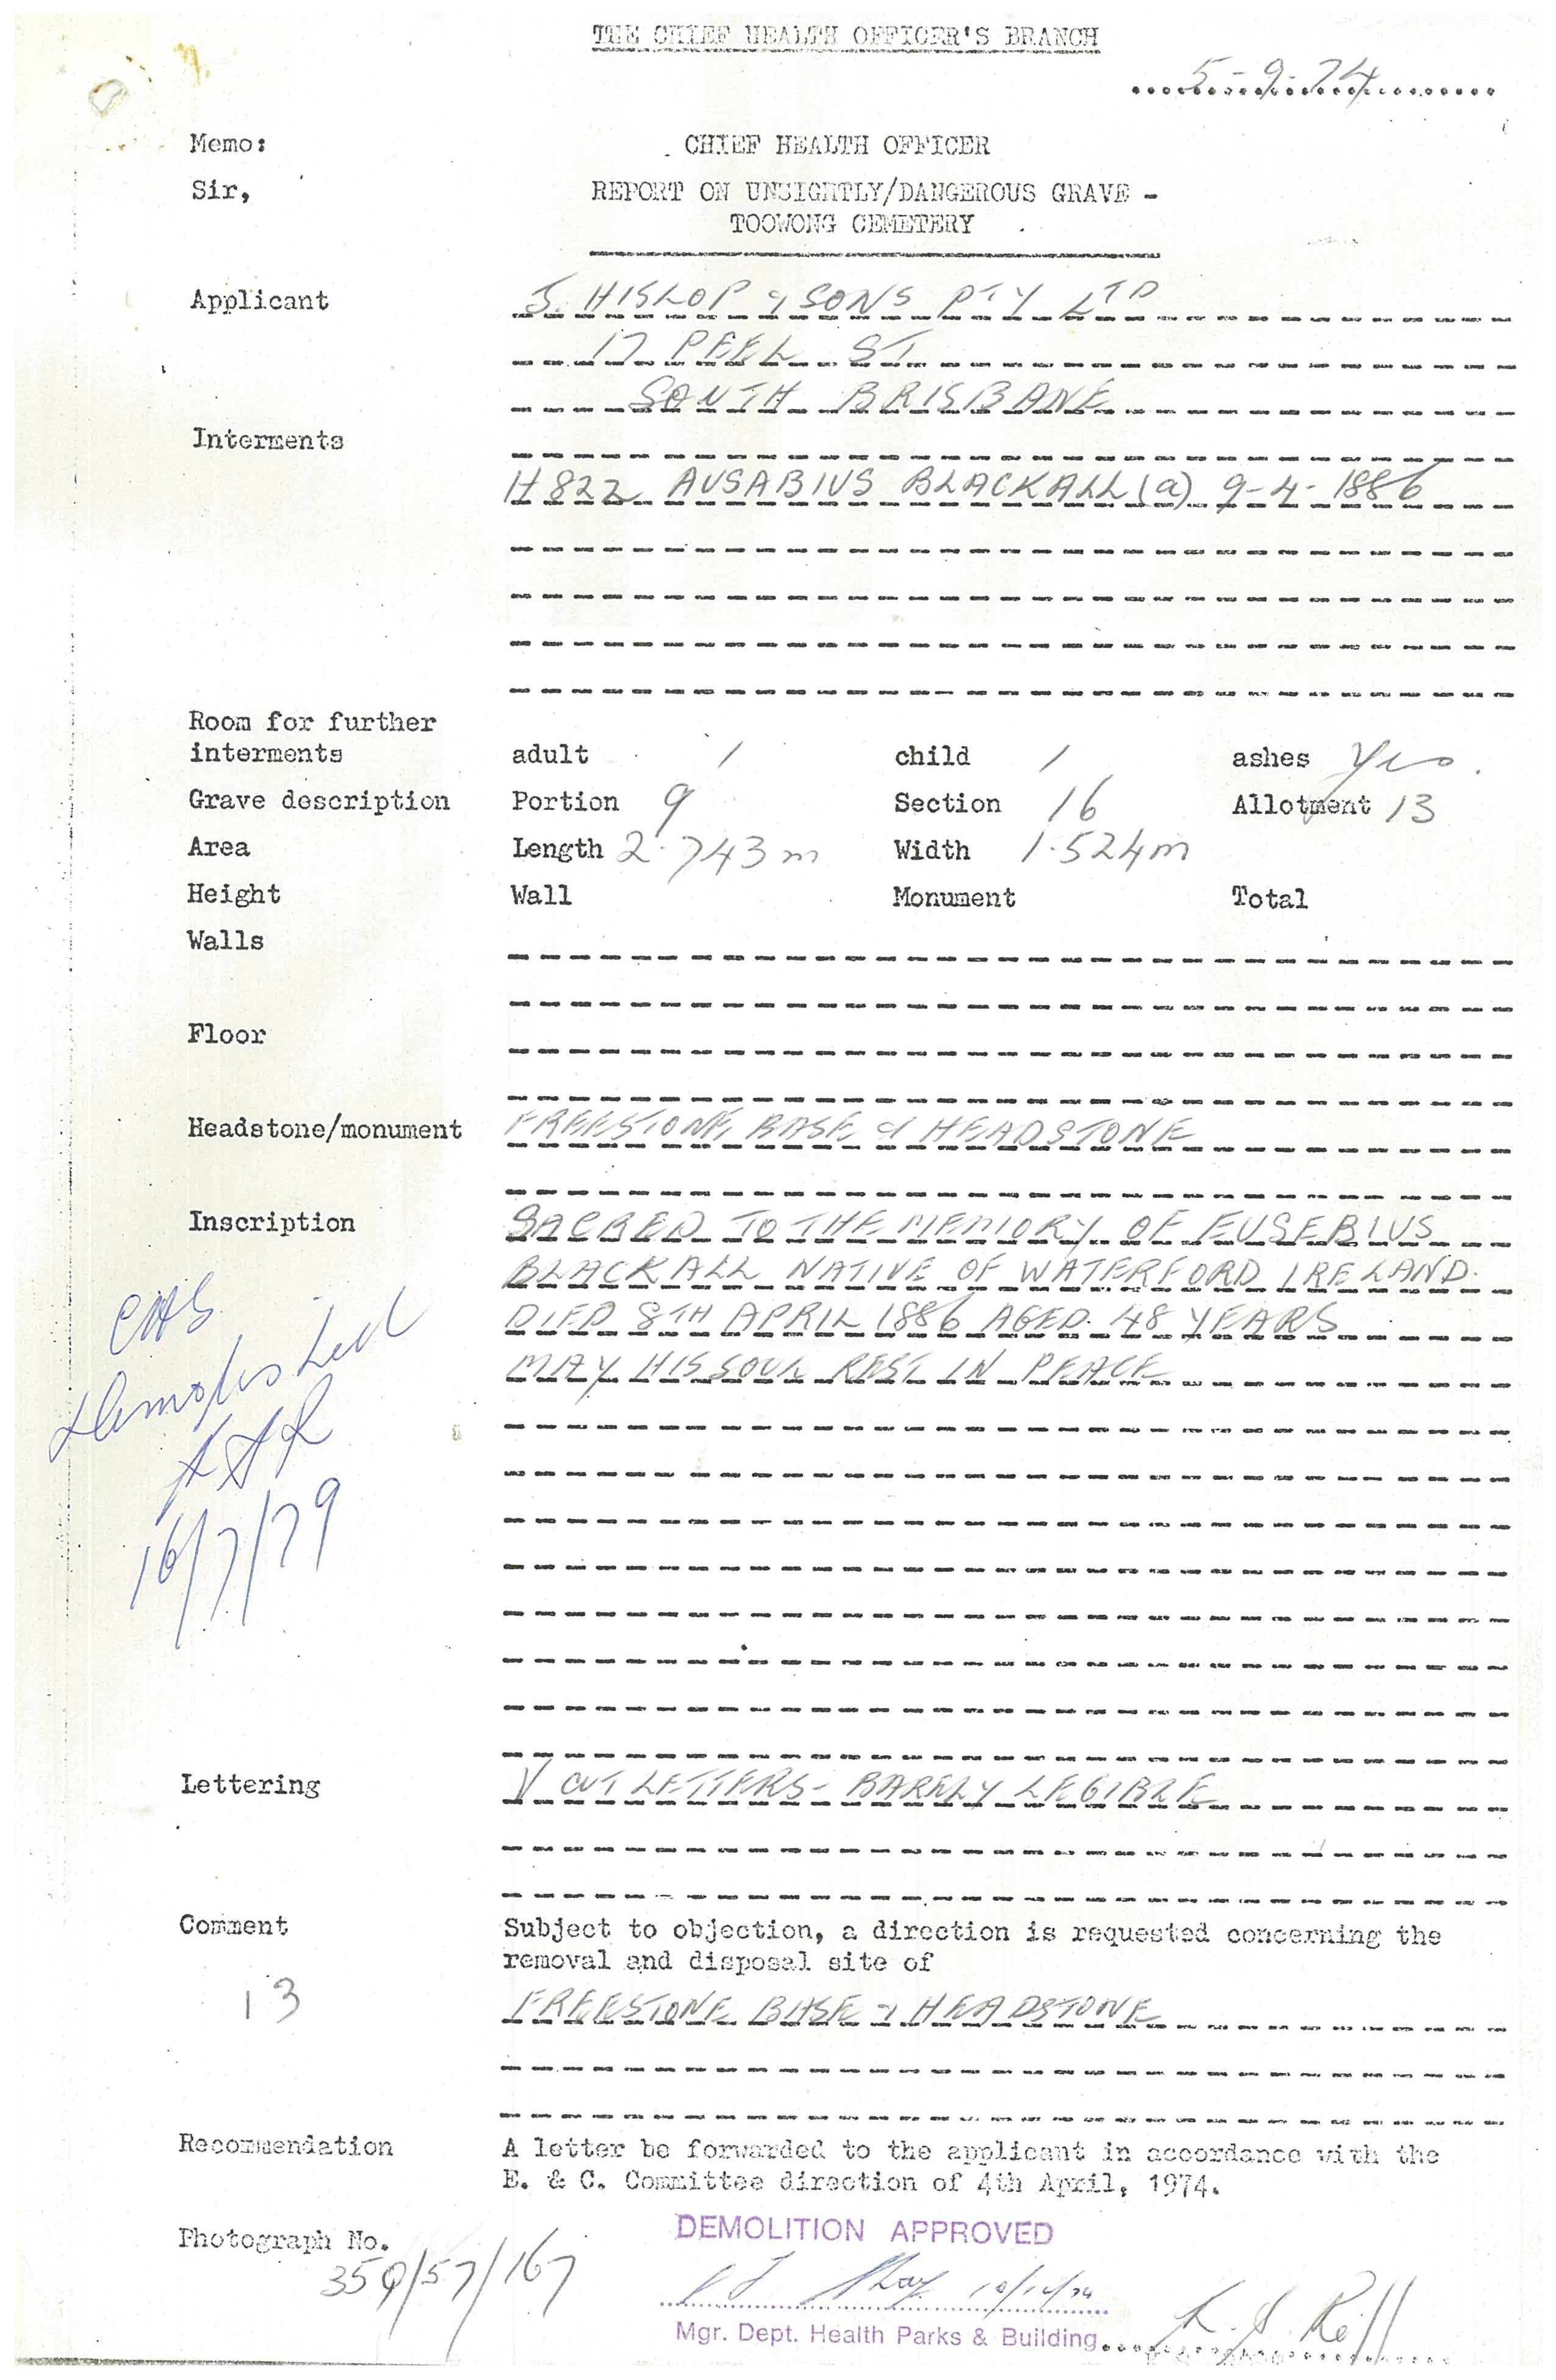 THE CHIEF HEALTH OFFICER'S BRANCH
5-9-74
Memo: CHIEF HEALTH OFFICER
Sir, REPORT ON UNSIGHTLY/DANGEROUS GRAVE -
TOOWONG CEMETERY
Applicant J. HISLOP & SONS PTY LTD
17 PEEL ST
SOUTH BRISBANE
Interments
H822 AUSABIUS BLACKALL (a) 9-4-1886
Room for further
interments adult 1 child 1 ashes Yes.
Grave description Portion 9 Section 16 Allotment 13
Area Length 2.743m Width 1.524m
Height Wall Monument Total
Walls
Floor
Headstone/monument FREESTONE BASE & HEADSTONE
Inscription SACRED TO THE MEMORY OF EUSEBIUS
BLACKALL NATIVE OF WATERFORD IRELAND.
DIED 8TH APRIL 1886 AGED 48 YEARS
MAY HIS SOUL REST IN PEACE
Demolished
16/7/79
Lettering V CUT LETTERS - BARELY LEGIBLE
Comment Subject to objection, a direction is requested concerning the
removal and disposal site of
13 FREESTONE BASE & HEADSTONE
Recommendation A letter be forwarded to the applicant in accordance with the
E. & C. Committee direction of 4th April, 1974.
Photograph No. DEMOLITION APPROVED
359/57/167
Mgr. Dept. Health Parks & Building